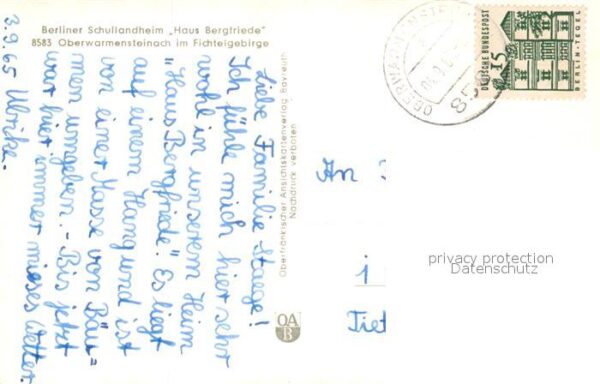 Berliner Schullandheim „Haus Bergfriede"
8583 Oberwarmensteinach im Fichtelgebirge
Liebe Familie Staege!
Ich fühle mich hier sehr
wohl in unserem Heim
"Haus Bergfriede". Es liegt
auf einem Hang und ist
von einer Masse von Bäu=
men umgeben. - Bis jetzt
war hier immer mieses Wetter.
3.9.65 Ulrike.
Oberfränkischer Ansichtskartenverlag Bayreuth
Nachdruck verboten
OA
B
858
DEUTSCHE BUNDESPOST
15
BERLIN-TEGEL
An
i
Tiet
privacy protection
Datenschutz